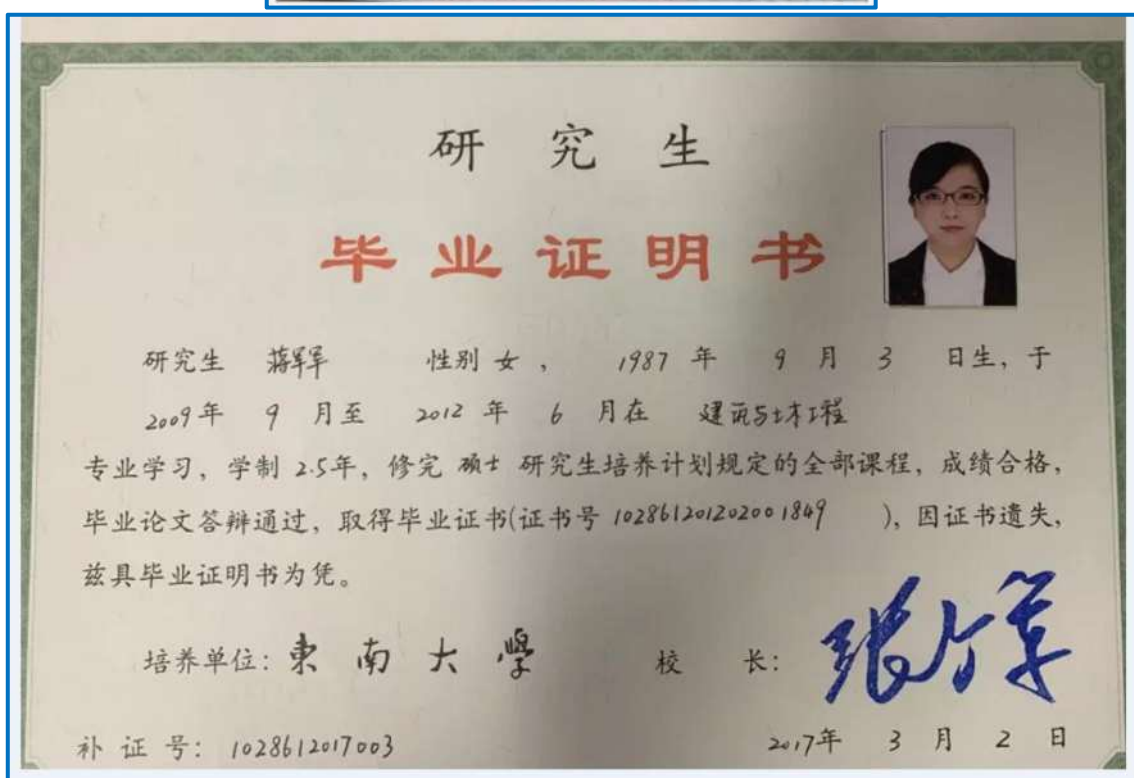 研究生
毕业证明书
研究生 蒋军军 性别 女, 1987 年 9 月 3 日生, 于
2009年 9 月至 2012 年 6 月在 建筑与土木工程
专业学习, 学制 2.5年, 修完 硕士 研究生培养计划规定的全部课程, 成绩合格,
毕业论文答辩通过, 取得毕业证书(证书号 102861201202001849 ), 因证书遗失,
兹具毕业证明书为凭。
培养单位: 東南大學 校 长:
补 证 号: 1028612017003 2017年 3 月 2 日